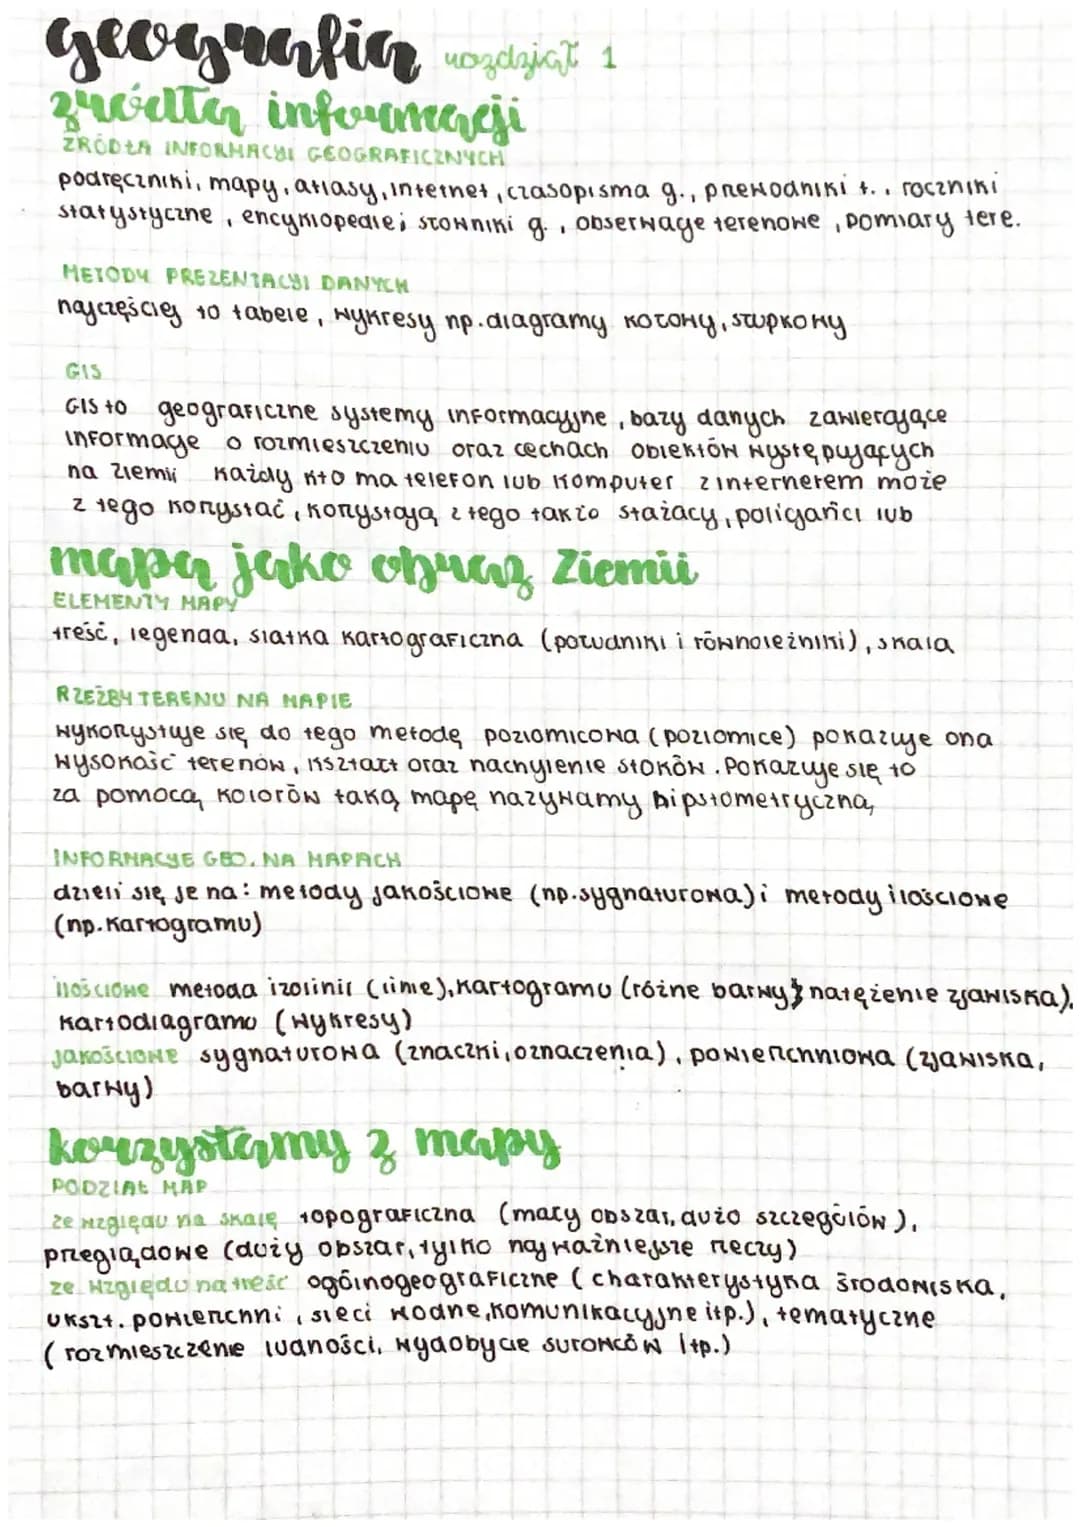 geografia rozdział 1
źródła informacji
ŹRÓDŁA INFORMACJI GEOGRAFICZNYCH
podręczniki, mapy, atlasy, internet, czasopisma g., przewodniki t., roczniki
statystyczne, encyklopedie i słowniki g., obserwacje terenowe, pomiary tere.
METODY PREZENTACJI DANYCH
najczęściej to tabele, wykresy np. diagramy kołowy, słupkowy
GIS
GIS to geograficzne systemy informacyjne, bazy danych zawierające
informacje o rozmieszczeniu oraz cechach obiektów występujących
na ziemii każdy kto ma telefon lub komputer z internetem może
z tego korzystać, korzystają z tego także strażacy, policjańci lub
mapa jako obraz Ziemii
ELEMENTY MAPY
treść, legenda, siatka kartograficzna (południki i równoleżniki), skala
RZEŹBY TERENU NA MAPIE
wykorzystuje się do tego metodę poziomicowa (poziomice) pokazuje ona
wysokość terenów, kształt oraz nachylenie stoków. Pokazuje się to
za pomocą kolorów taką mapę nazywamy hipstometryczną
INFORMACJE GEO. NA MAPACH
dzieli się je na: metody jakościowe (np. sygnaturowa) i metody ilościowe
(np. kartogramu)
ilościowe metoda izolinii (linie), kartogramu (różne barwy, natężenie zjawiska),
kartodiagramu (wykresy)
jakościowe sygnaturowa (znaczki, oznaczenia), powierzchniowa (zjawiska,
barwy)
korzystamy z mapy
PODZIAŁ MAP
ze względu na skalę topograficzna (mały obszar, dużo szczegółów),
przeglądowe (duży obszar, tylko najważniejsze rzeczy)
ze względu na treść ogólnogeograficzne (charakterystyka środowiska,
ukszt. powierzchni, sieci wodne, komunikacyjne itp.), tematyczne
(rozmieszczenie ludności, wydobycie surowców itp.)